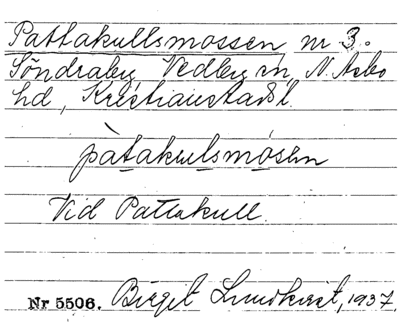 Pattakullsmossen, nr 3.
Söndraby, Vedby sn, N. Åsbo
hd, Kristianstads l.
pàtakulsmósen
Vid Pattakull.
Nr 5506. Birgit Lundkvist, 1937.